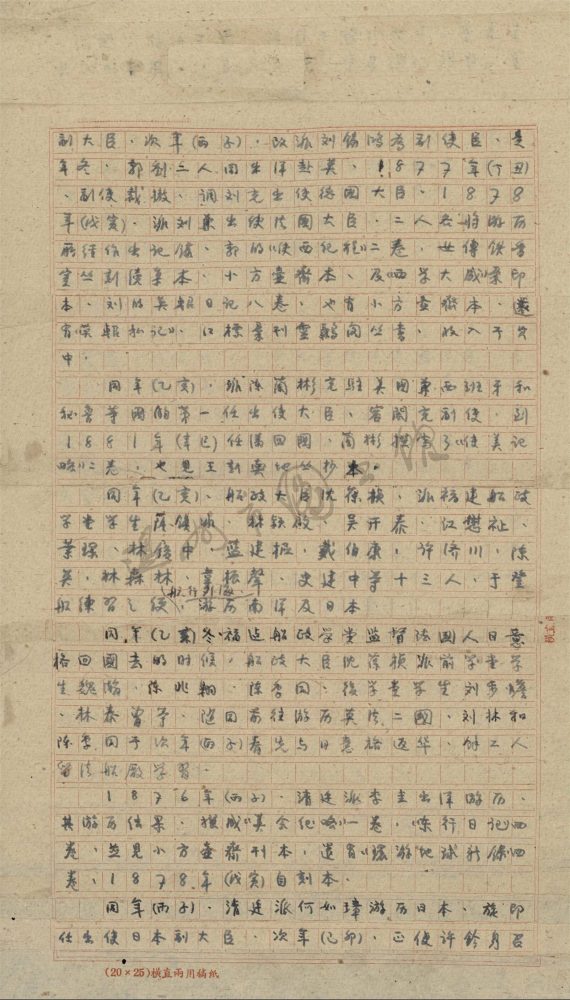 副大臣、次年(丙子)、改派刘锡鸿为副使臣、是
年冬、郭刘二人同出洋赴英、1877年(丁丑)
、副使裁撤、调刘充出使德国大臣、1878
年(戊寅)、派刘出使法国大臣、二人各将游历
所经作出记录、郭的《使西纪程》二卷、
丛刻本、小方壶斋本、及西学大成印
本、刘的英轺日记八卷、也有小方壶斋本、还
有《英轺私记》、江标刊灵鹣阁丛书、收入于其
中.
同年(乙亥)、派陈兰彬充驻美国兼西班牙和
秘鲁等国的第一任出使大臣、容闳充副使、到
1881年(辛巳)任满回国、兰彬撰写了《使美记
略》二卷、也见王刻舆地丛抄本.
同年(乙亥)、船政大臣沈葆桢、派福建船政
学堂学生萨镇冰、林颖启、吴开泰、江懋祉、
叶琛、林履中、蓝建枢、戴伯康、许济川、陈
英、林森林、韦振声、史建中等十三人、于登
船练习之便(航行到)、游历南洋及日本
同年(乙亥)冬福建船政学堂监督法国人日意
格回国去的时候、船政大臣沈葆桢派前学堂学
生魏瀚、陈兆翱、陈季同、后学堂学生刘步蟾
、林泰曾等、随同前往游历英法二国、刘林和
陈季同于次年(丙子)春先与日意格返华、余二人
留法船厂学习.
1876年(丙子)、清廷派李圭出洋游历、
其游历结果、撰成《美会纪略》一卷、《东行日记》四
卷、并见小方壶斋刊本、还有《环游地球新录》四
卷、1878年(戊寅)自刻本.
同年(丙子)、清廷派何如璋游历日本、旋即
任出使日本副大臣、次年(己卯)、正使许钤身召
(20×25)横直两用稿纸